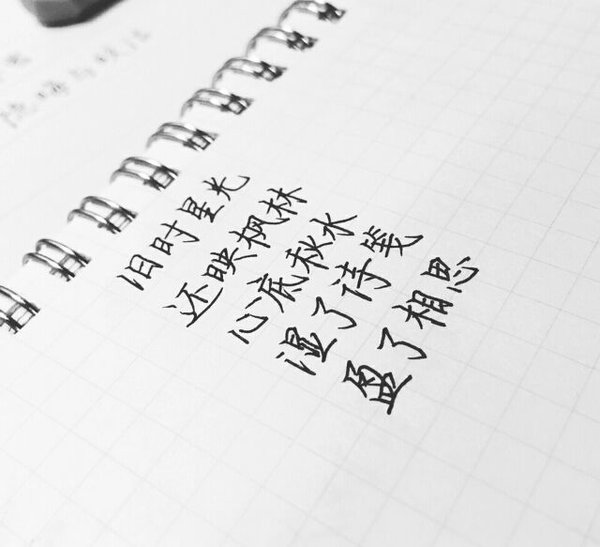 旧时星光
还映枫林
心底秋水
湿了诗笺
盈了相思